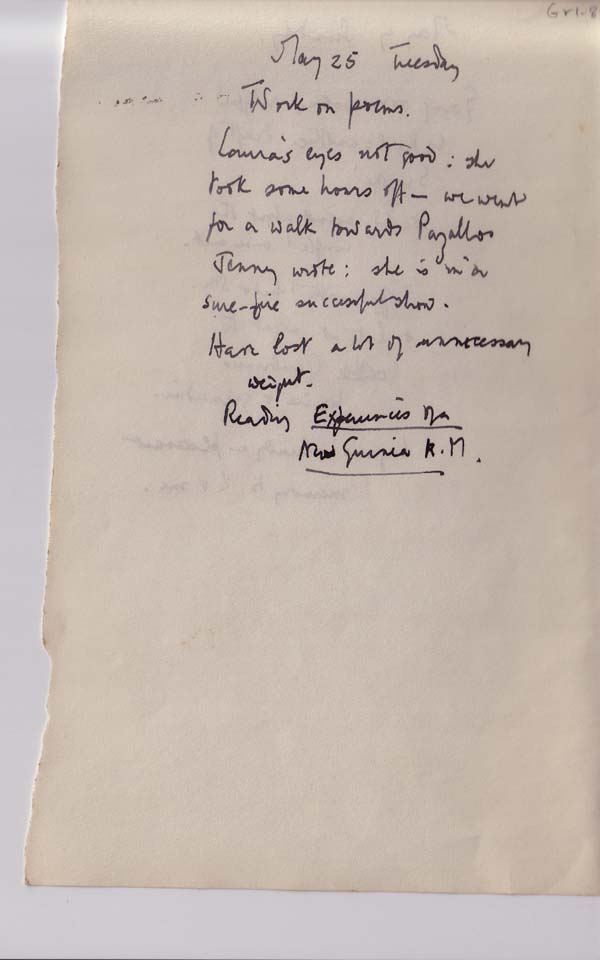 May 25 Tuesday
Work on poems.
Laura's eyes not good: she
took some hours off – we went
for a walk towards
Jenny wrote: she is in a
sure-fire successful show.
Have lost a lot of unnecessary
weight.
Reading Experiences of a
New Guinea R.M.